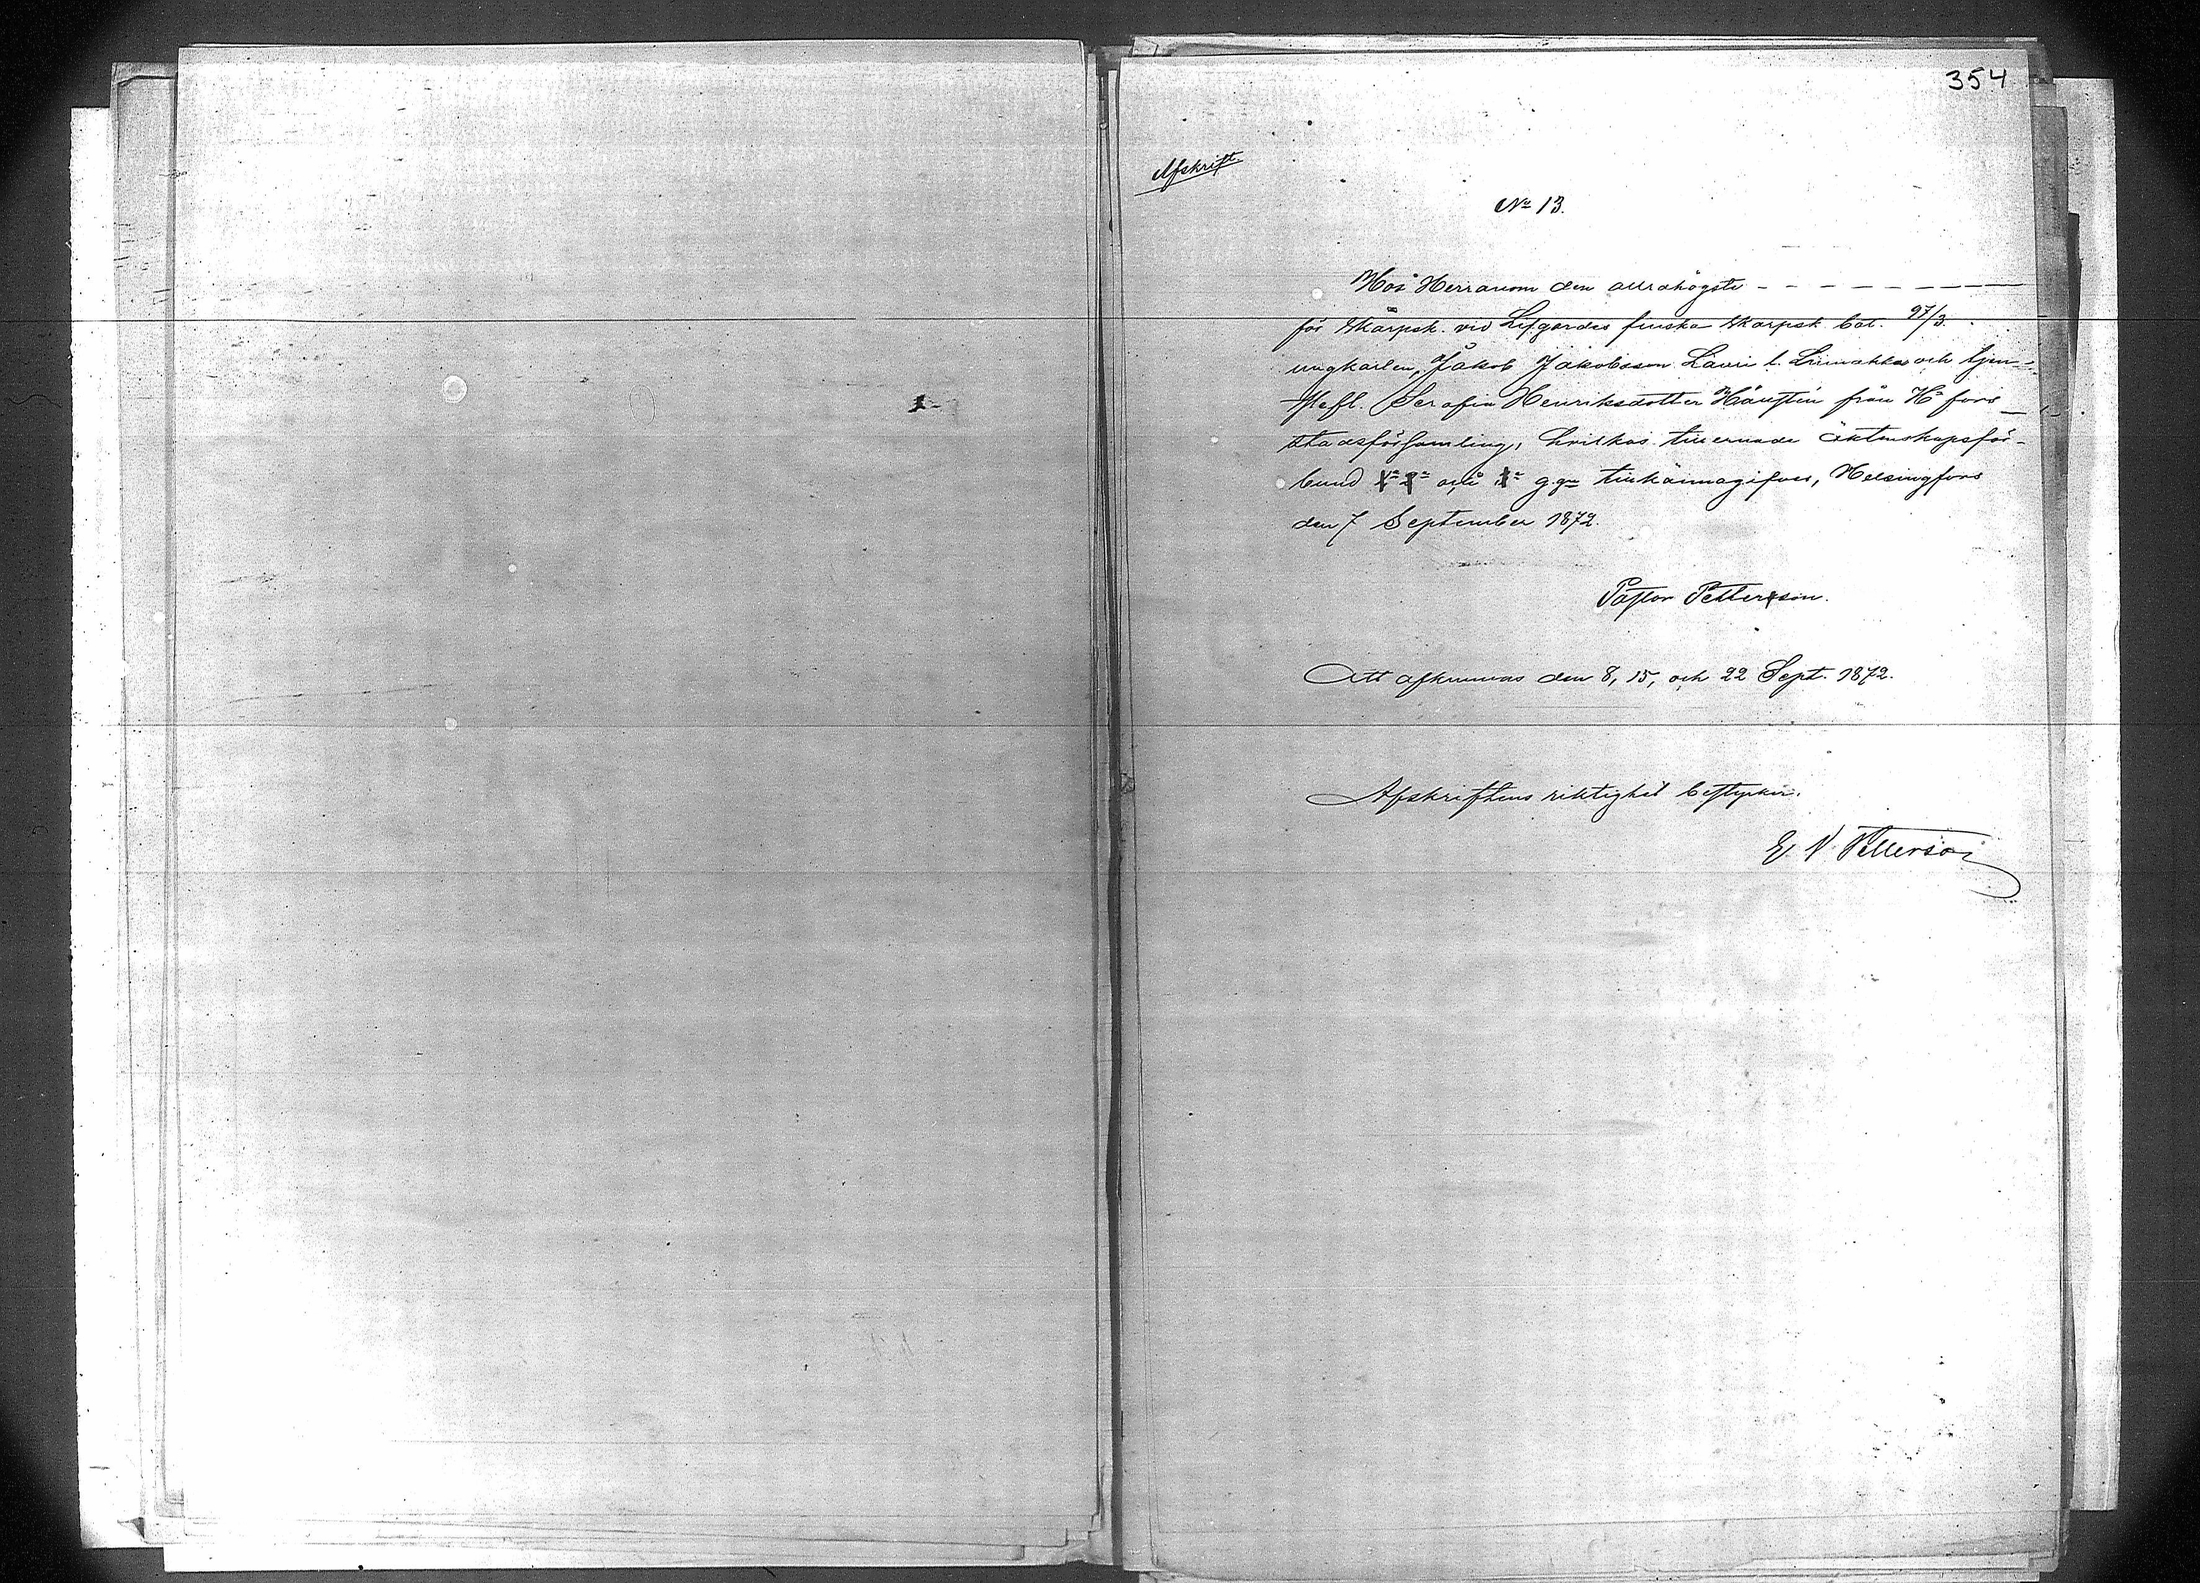 354
Afskrift.
No 13.
Hos Herranom den allrahögste
för Skarpsk. vid Lifgardes finska Skarpsk. bat. 97/3.
ungkarlen, Jakob Jakobsson Lauri l. och tjen-
stefl. Serafia Henriksdotter från H:fors
stadsförsamling, hvilkas tillernade äktenskapsför-
bund 1:a 2:a och 3:e g:gn tillkännagifves, Helsingfors
den 7 September 1872.
Pastor Pettersson.
Att afkunnas den 8, 15, och 22 Sept. 1872.
Afskriftens riktighet bestyrker.
Pettersson